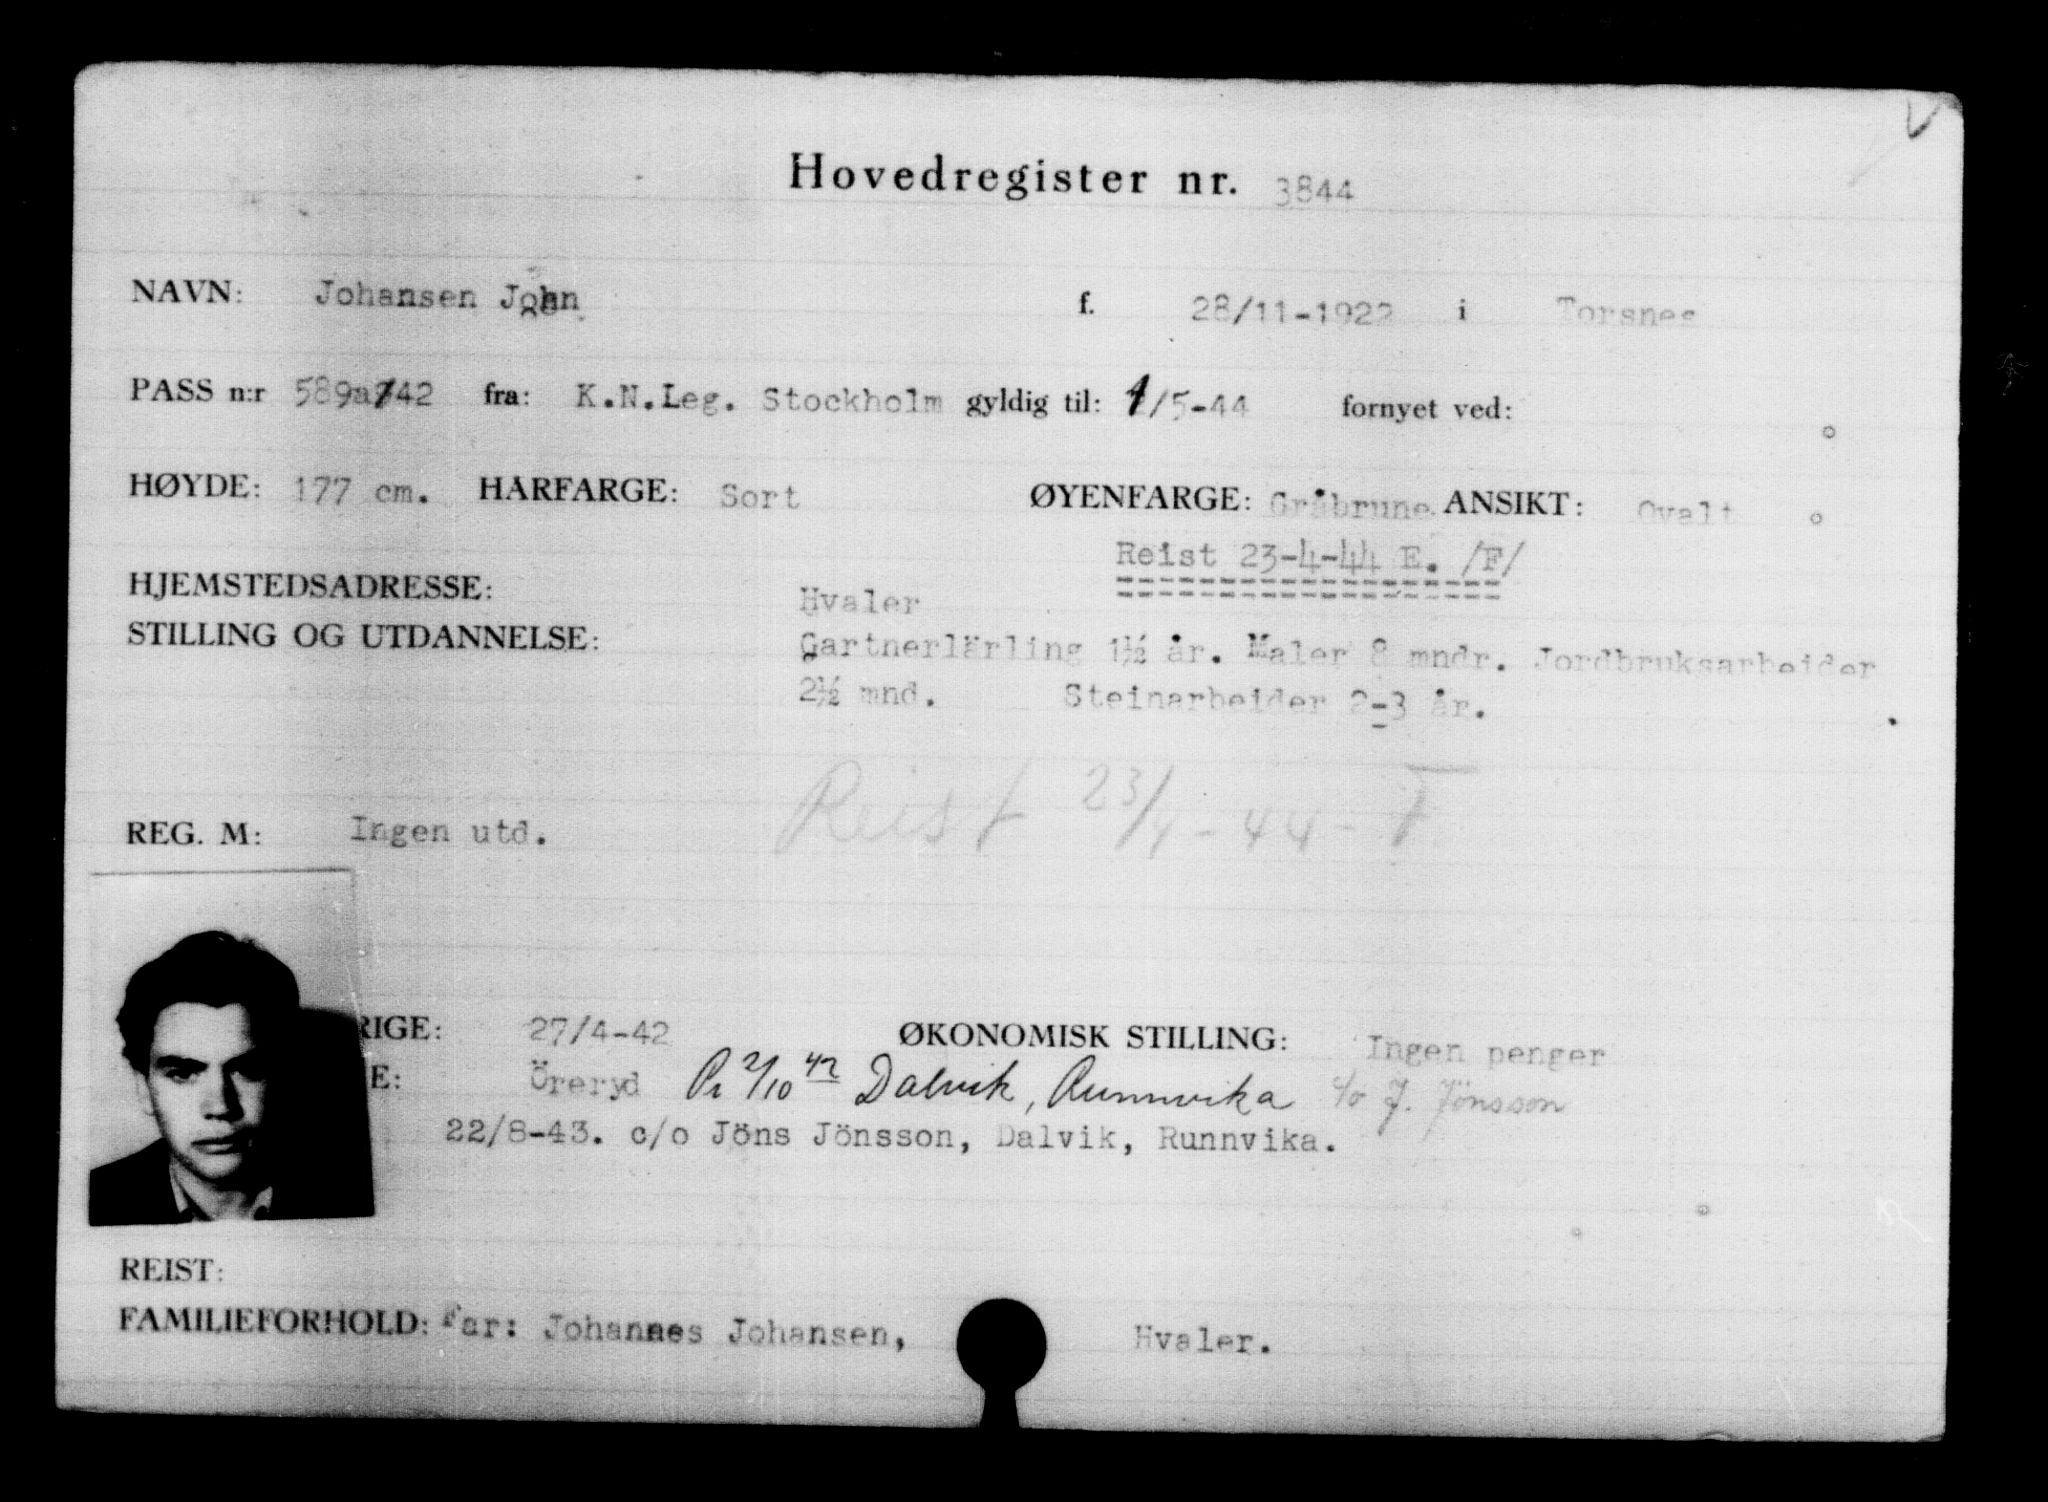 Hovedregister nr. 3844
NAVN: Johansen John f. 28/11-1922 i Torsnes
PASS n:r 589a/42 fra: K.N.Leg. Stockholm gyldig til: 1/5-44 fornyet ved:
HØYDE: 177 cm. HÅRFARGE: Sort ØYENFARGE: Gråbrune ANSIKT: Ovalt
Reist 23-4-44 E. /F/
HJEMSTEDSADRESSE: Hvaler
STILLING OG UTDANNELSE: Gartnerlärling 1½ år. Maler 8 mndr. Jordbruksarbeider
2½ mnd. Steinarbeider 2-3 år.
Reist 23/4-44- F
REG. M: Ingen utd.
RIGE: 27/4-42 ØKONOMISK STILLING: Ingen penger
E: Öreryd Pr 2/10 42 Dalvik, Runnvika c/o J. Jönsson
22/8-43. c/o Jöns Jönsson, Dalvik, Runnvika.
REIST:
FAMILIEFORHOLD: Far: Johannes Johansen, Hvaler.